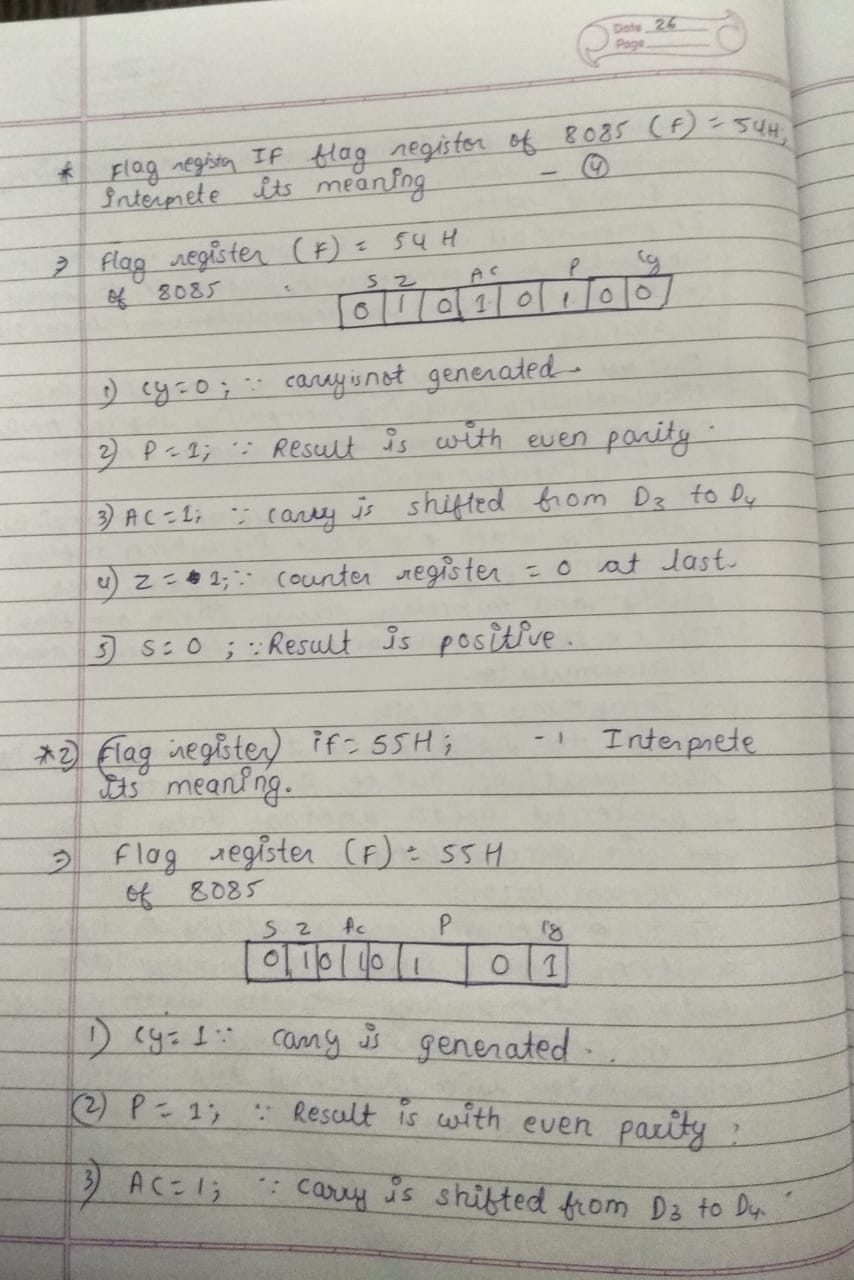 Date 26
Page
* Flag register IF flag register of 8085 (F) = 54H,
Interprete its meaning - (4)
⇒ Flag register (F) = 54 H
of 8085
S Z AC P Cy
0 1 0 1 0 1 0 0
1) Cy=0; ∵ carry is not generated.
2) P=1; ∵ Result is with even parity.
3) AC=1; ∵ carry is shifted from D3 to D4
4) Z=1; ∵ counter register = 0 at last.
5) S=0 ; ∵ Result is positive.
*2) Flag register) if = 55H; -1 Interprete
its meaning.
⇒ Flag register (F) = 55H
of 8085
S Z Ac P Cy
0 1 0 1 0 1 0 1
1) Cy=1 ∵ carry is generated.
(2) P=1; ∵ Result is with even parity
3) AC=1; ∵ carry is shifted from D3 to D4.